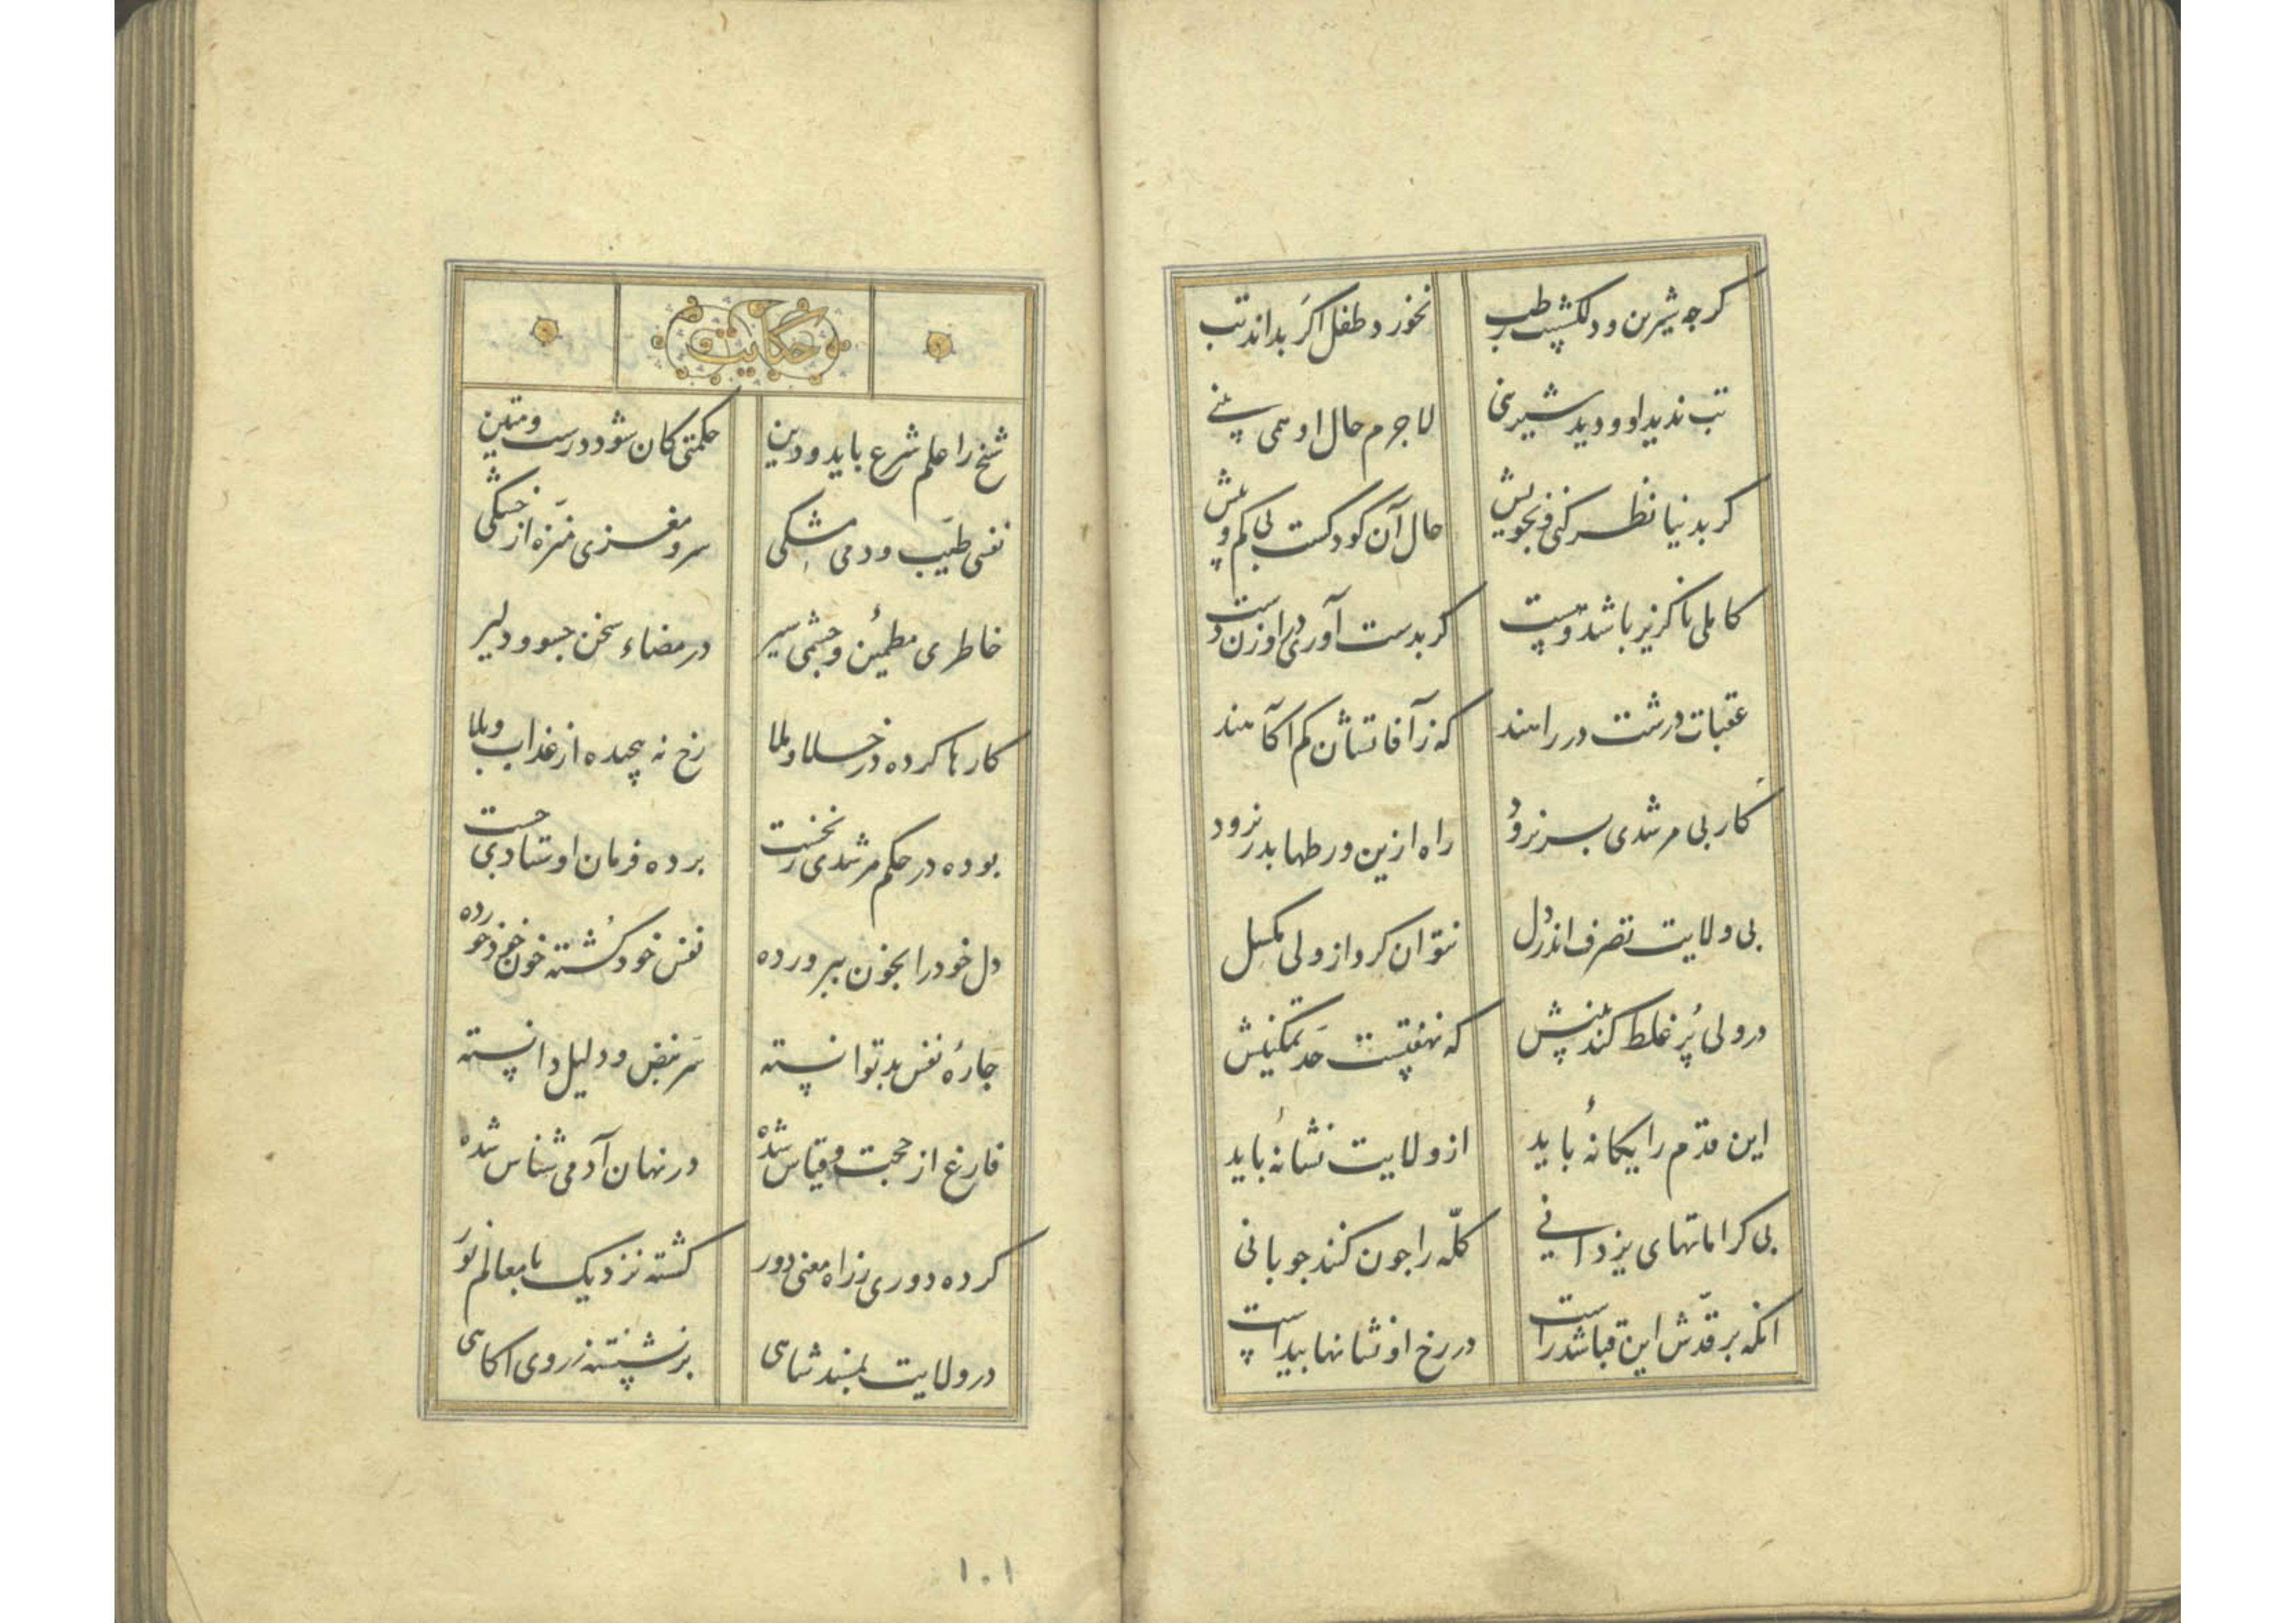 کرچه شیرین و دلکشست رطب نخورد طفل اکر بداند تب
تب ندید او و دید شیرینی لاجرم حال او همی بینی
کر بدنیا نظر کنی فی بخویش حال آن کودکست بی کم و بیش
کاملی ناکزیر باشد و پست کر بدست آوری در او زن دست
عقبات درشت در راهند که ز آفاتشان کم آکاهند
کار بی مرشدی بسر نرود راه ازین ورطها بدر نرود
بی ولایت تصرف اندر دل نتوان کرد از ولی مکسل
در ولی پُر غلط کند بینش که نهفتست حد تمکینش
این قدم را یکانهٔ باید از ولایت نشانهٔ باید
بی کراماتهای یزدانی کلّه را جون کند جوبانی
انکه بر قدّش این قبا شد راست در رخ او نشانها پیداست
حکایت
شیخ را علم شرع باید و دین حکمتی کان شود درست و متین
نفسی طیّب و دمی مشکی سر و مغزی منزه از خشکی
خاطری مطمئن و جشمی سیر در مضاء سخن جسور و دلیر
کارها کرده در خلا و ملا رخ نه پیچیده از عذاب و بلا
بوده در حکم مرشدی ز نخست برده فرمان اوستادی جست
دل خود را بخون بپرورده نفس خود کُشته خون خود خورده
جارهٔ نفس بد توانسته سَر نبض و دلیل دانسته
فارغ از حجت و قیاس شده در نهان آدمی شناس شده
کرده دوری ز راه معنی دور کشته نزدیک با معالم نور
در ولایت بمسند شاهی برنشسته ز روی آکاهی
۱۰۱